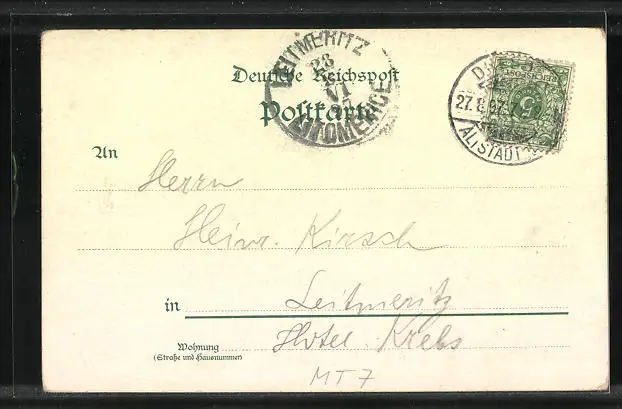 LEITMERITZ
23
VI
LITOMĚŘICE
Deutsche Reichspost
Postkarte
REICHSPOST
5
27.8.97
ALTSTADT
An
Herrn
Heinr. Kirsch
in Leitmeritz
Wohnung
(Straße und Hausnummer)
Hotel Krebs
MT7